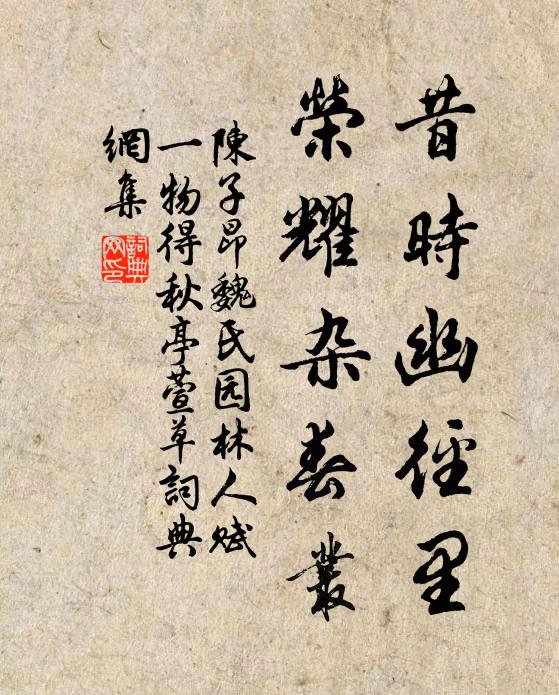 昔時幽徑里
榮耀杂春叢
陳子昂魏氏园林人赋
一物得秋亭萱草詞典
網集
詞典
网印